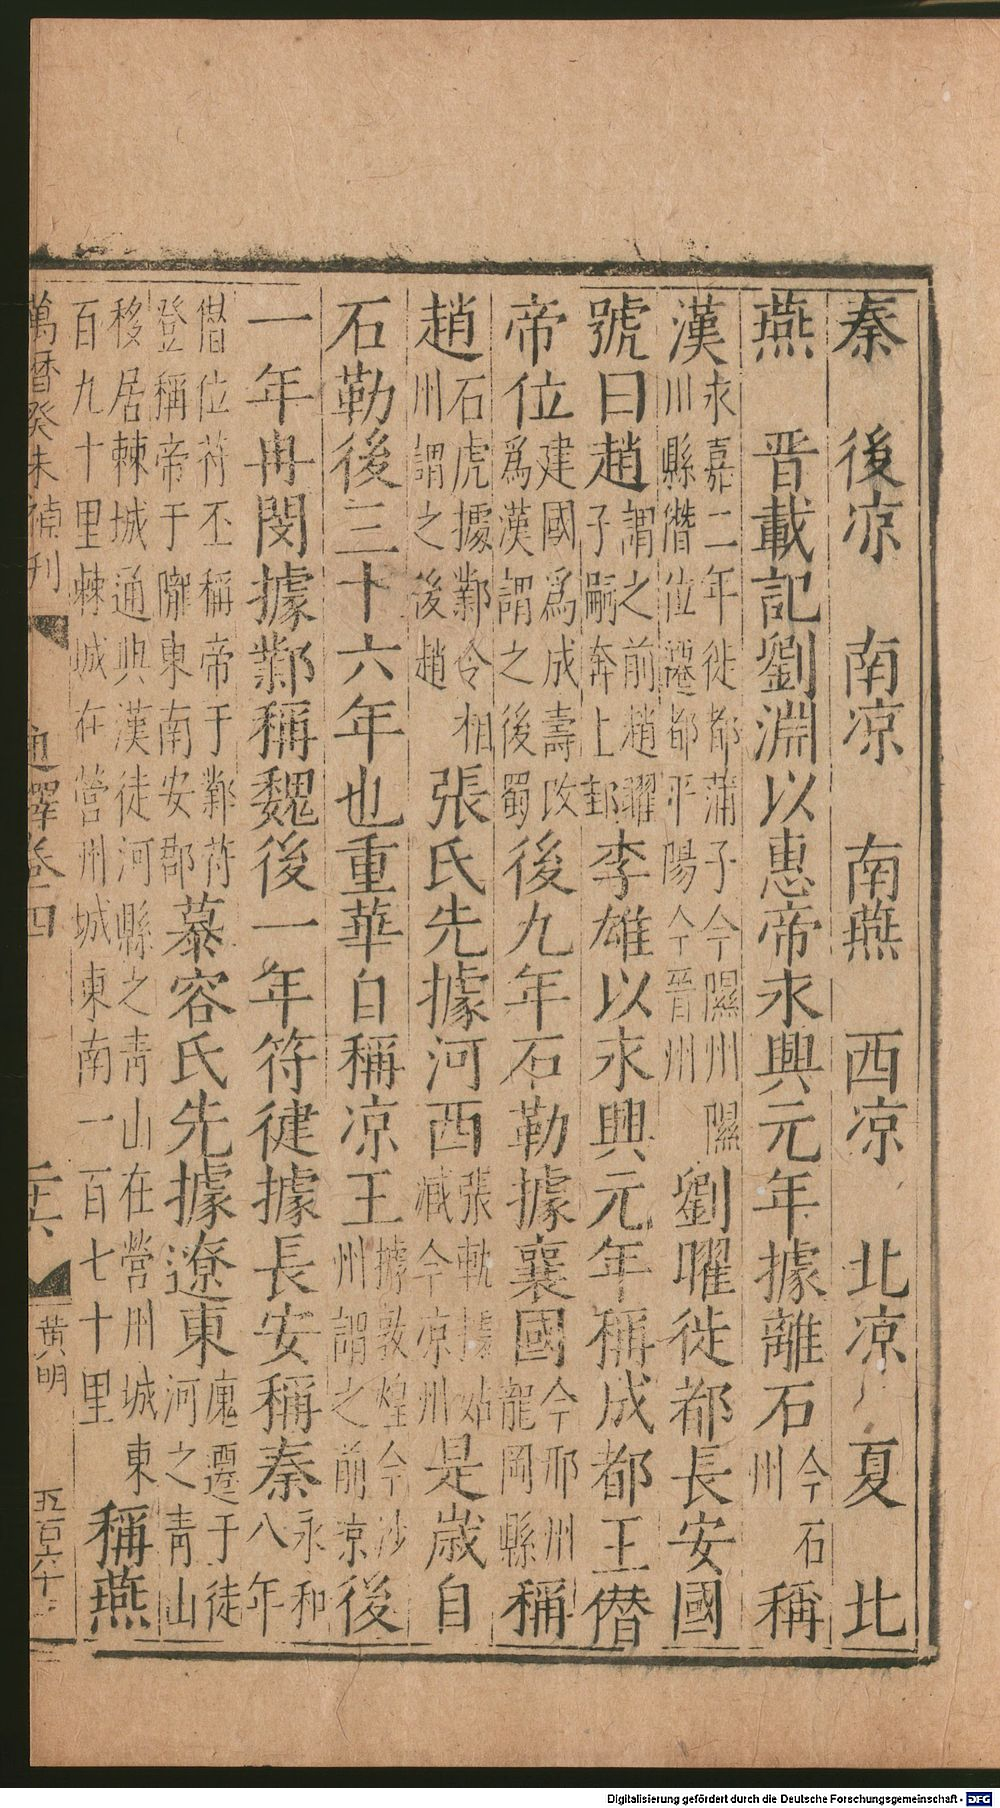 秦　後凉　南凉　南燕　西凉　北凉　夏　北
燕　晋載記劉淵以惠帝永興元年據離石今石州稱
漢永嘉二年徙都蒲子今隰州隰川縣僭位遷都平陽今晉州劉曜徙都長安國
號曰趙謂之前趙曜子嗣奔上邽李雄以永興元年稱成都王僭
帝位建國爲成壽改爲漢謂之後蜀後九年石勒據襄國今邢州龍岡縣稱
趙石虎據鄴今相州謂之後趙張氏先據河西張軌據姑臧今凉州是歲自
石勒後三十六年也重華自稱凉王據敦煌今沙州謂之前凉後
一年冉閔據鄴稱魏後一年符健據長安稱秦永和八年
僣位苻丕稱帝于鄴苻登稱帝于隴東南安郡慕容氏先據遼東廆遷于徒河之青山
移居棘城通典漢徒河縣之青山在營州城東百九十里棘城在營州城東南一百七十里稱燕
萬曆癸未補刊
通釋卷四
二十六
黄明
五百六十三
Digitalisierung gefördert durch die Deutsche Forschungsgemeinschaft - DFG